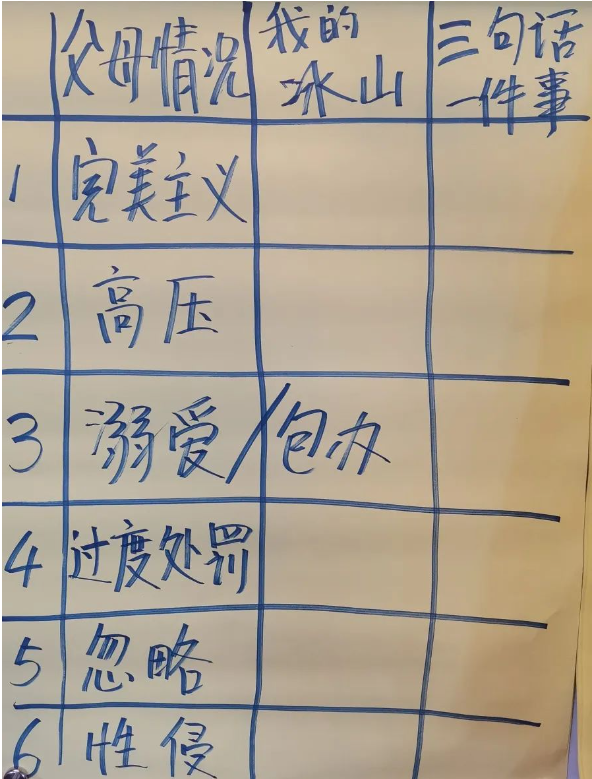 父母情况 我的冰山 三句话一件事
1 完美主义
2 高压
3 溺爱/包办
4 过度处罚
5 忽略
6 性侵